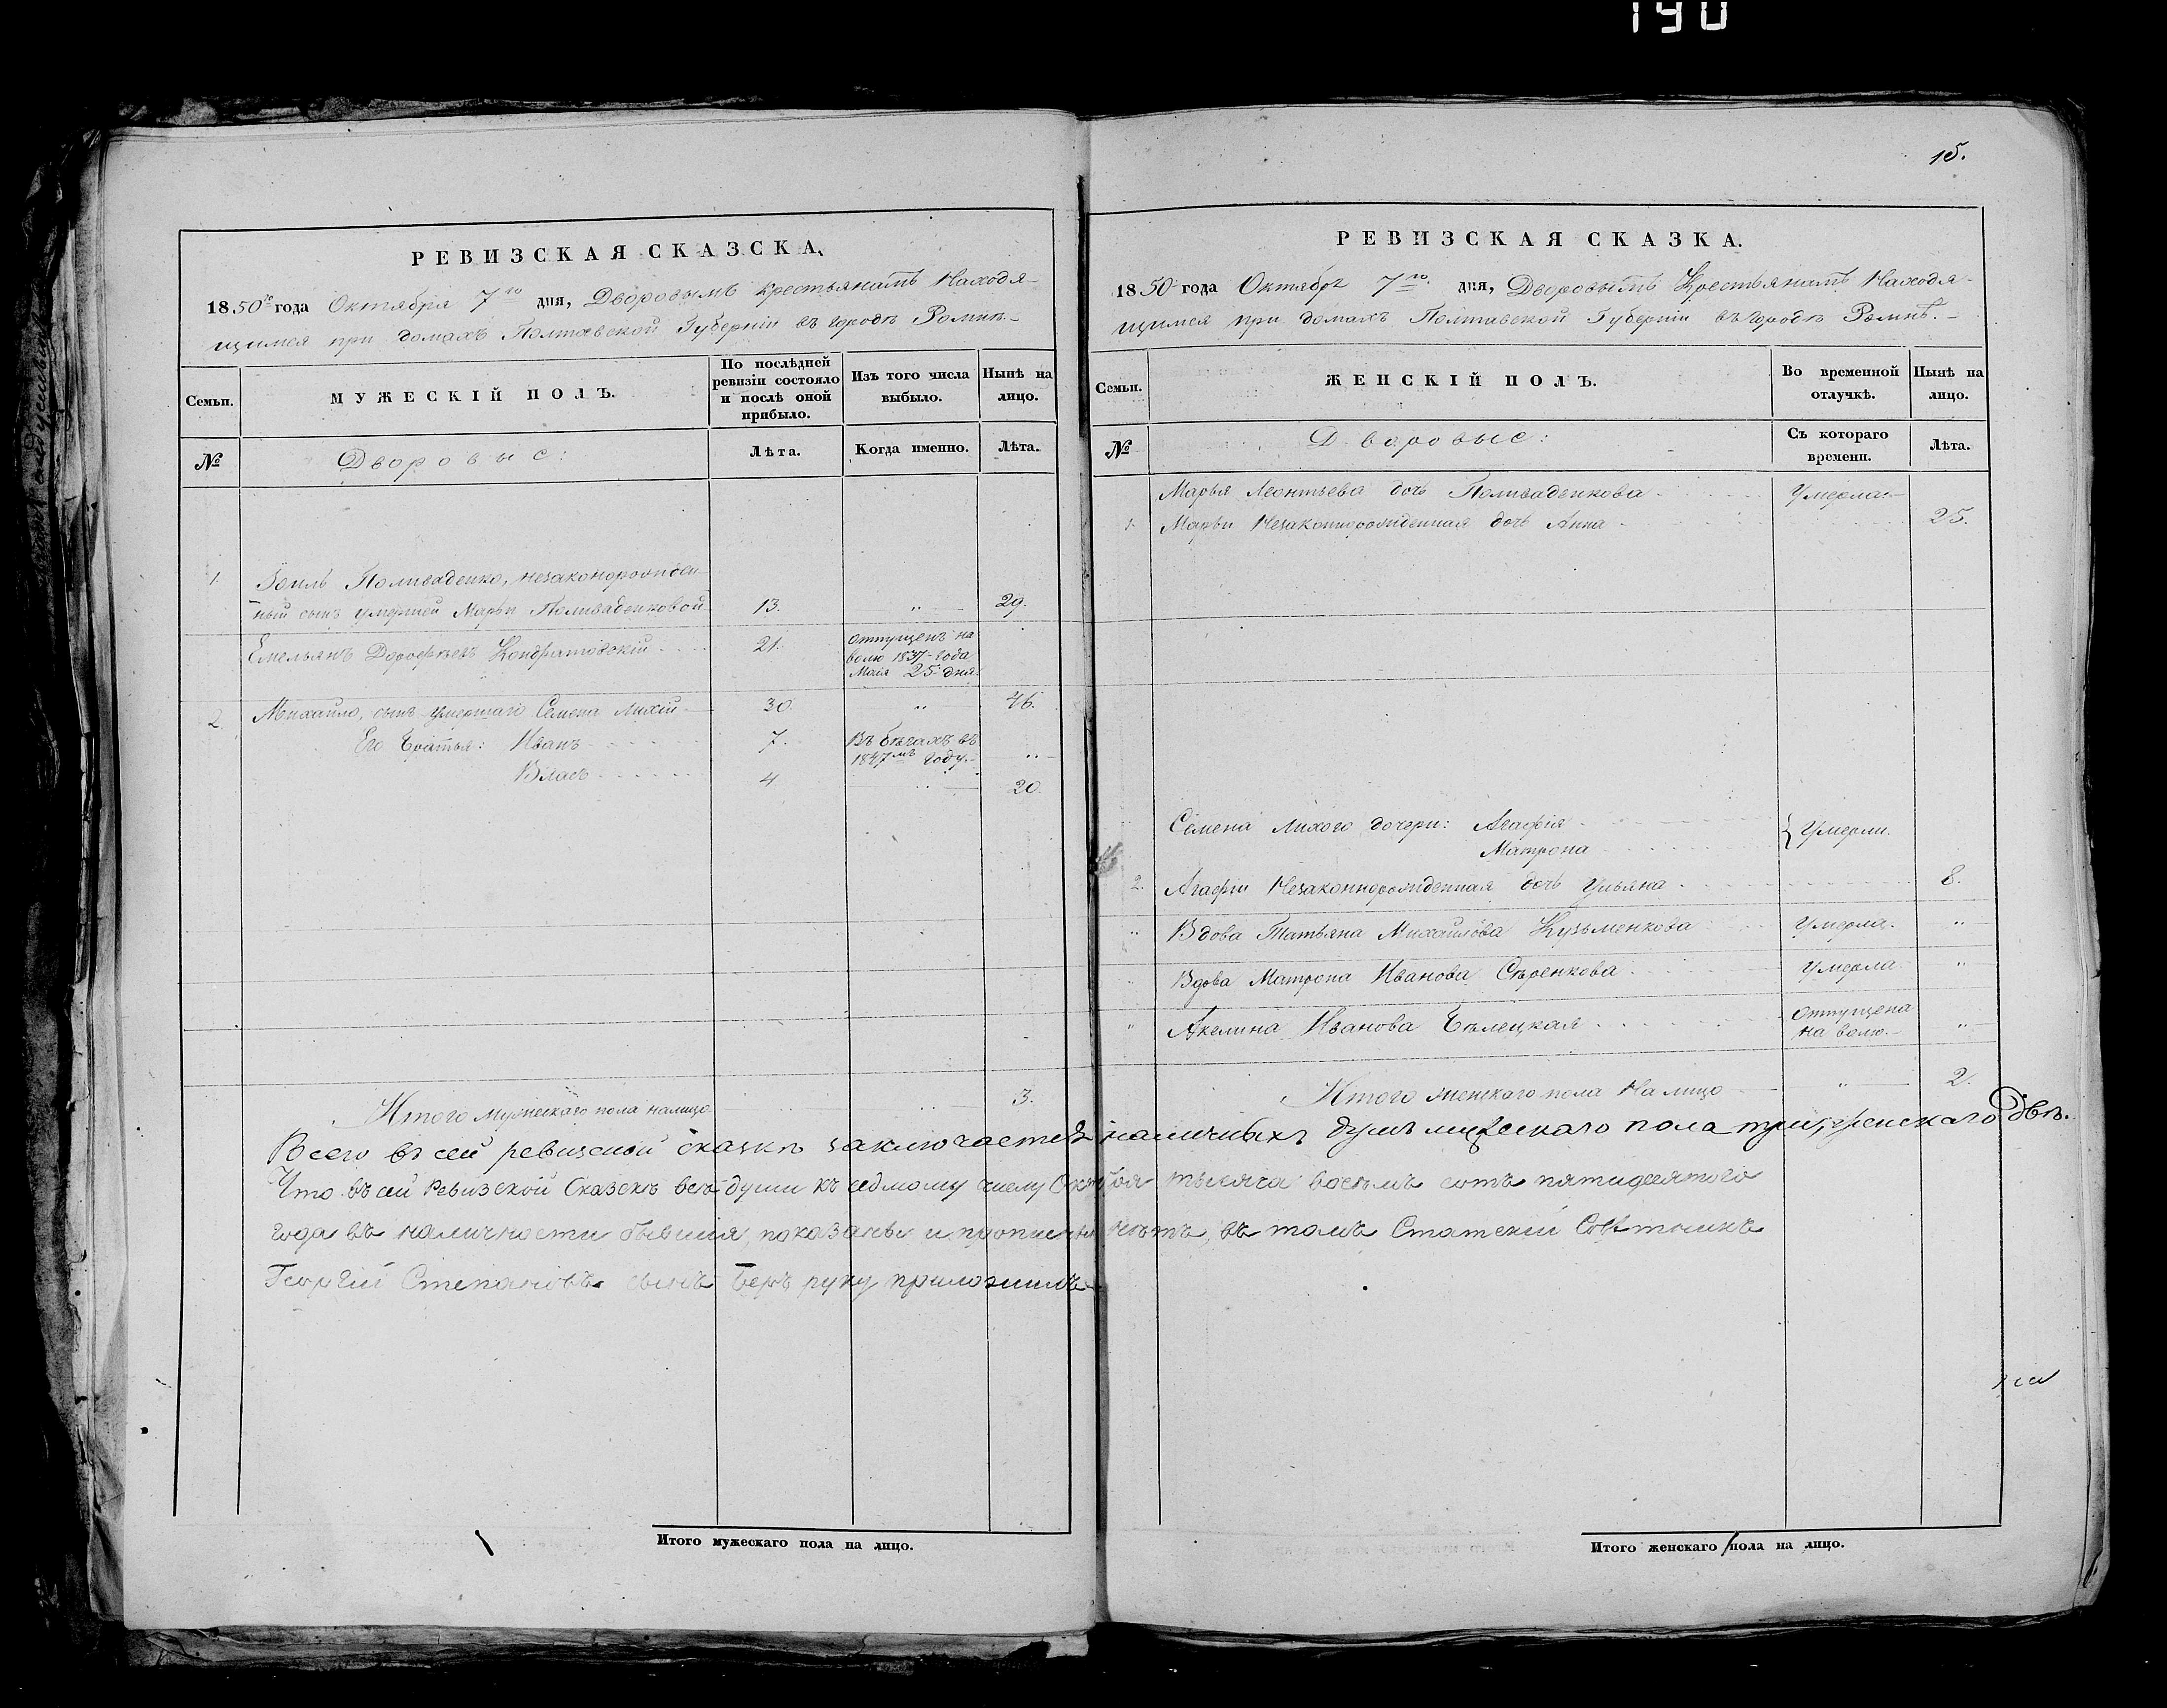 190
15.
РЕВИЗСКАЯ СКАЗСКА.
1850го года Октября 7го дня, Дворовымъ крестьянамъ Находя-
щимся при домахъ Полтавской Губерніи въ городѣ Ромнѣ.-
Семьи. МУЖЕСКІЙ ПОЛЪ. По послѣдней ревизіи состояло и послѣ оной прибыло. Изъ того числа выбыло. Нынѣ на лицо.
№ Дворовые: Лѣта. Когда именно. Лѣта.
1. Зоилъ Поливаденко, незаконорожден-
ный сынъ умершей Марьи Поливаденковой 13. „ 29.
Емельянъ Дорофѣевъ Кондратовскій 21. отпущенъ на
волю 1837 года
Маія 25 дня.
2 Михайло, сынъ умершаго Семена Лихій 30. „ 46.
Его братья: Иванъ 7. Въ бѣгахъ въ
1847мъ году. „
Власъ 4 „ 20.
Итого мужескаго пола налицо „ „ 3.
РЕВИЗСКАЯ СКАЗКА.
1850 года Октября 7го дня, Дворовымъ Крестьянамъ Находя-
щимся при домахъ Полтавской Губерніи въ городѣ Ромнѣ.-
Семьи. ЖЕНСКІЙ ПОЛЪ. Во временной отлучкѣ. Нынѣ на лицо.
№ Дворовые: Съ котораго времени. Лѣта.
Марья Леонтьева дочь Поливаденкова Умерла
1. Марьи Незаконнорожденная дочь Анна 25.
Семена Лихого дочери: Агафія
Матрона } Умерли.
2. Агафіи Незаконнорожденная дочь Ульяна 8.
„ Вдова Татьяна Михайлова Кузьменкова Умерла. „
„ Вдова Матрона Иванова Сѣренкова Умерла „
„ Акелина Иванова Бѣлецкая Отпущена
на волю.- „
Итого женскаго пола На лицо „ 2.
Всего въ сей ревизской сказкѣ заключается наличныхъ душъ мужескаго пола три, женскаго двѣ.
Что въ сей Ревизской Сказскѣ всѣ души къ седмому числу Октября тысяча восемь сотъ пятидесятого
года въ наличности бывшія, показаны и прописныхъ нѣтъ, въ томъ Статскій Совѣтникъ
Георгій Степановъ сынъ руку приложилъ
Итого мужескаго пола на лицо.
Итого женскаго пола на лицо.